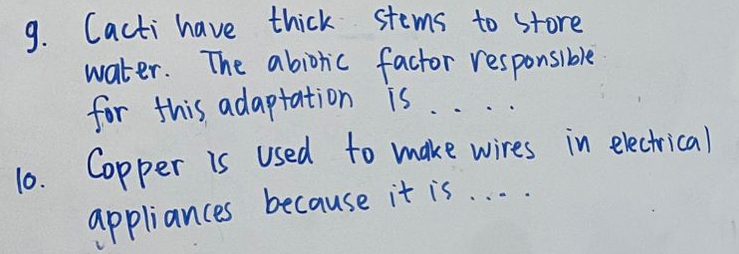 9. Cacti have thick stems to store
water. The abiotic factor responsible
for this adaptation is ....
10. Copper is used to make wires in electrical
appliances because it is ....